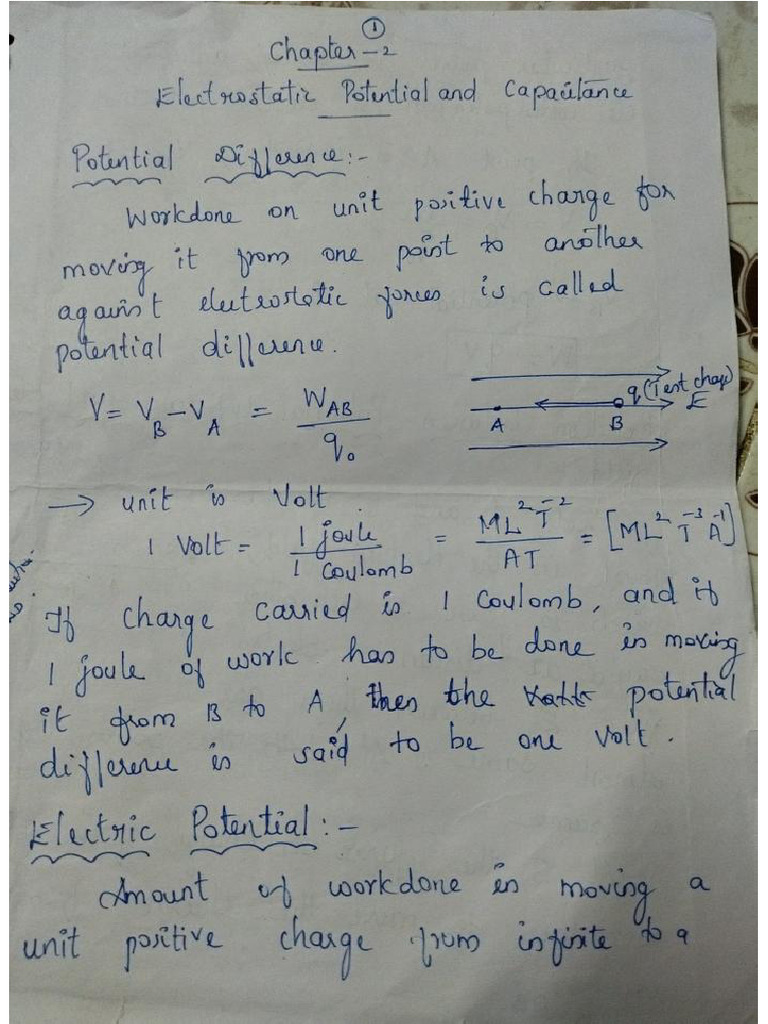 1
Chapter-2
Electrostatic Potential and Capacitance
Potential Difference:-
Workdone on unit positive charge for
moving it from one point to another
against electrostatic forces is called
potential difference.
V = V_B - V_A = W_AB / q_0
q (Test charge)
A B E
→ unit is Volt.
1 Volt = 1 joule / 1 Coulomb = ML² T⁻² / AT = [ML² T⁻³ A⁻¹]
If charge carried is 1 Coulomb, and if
1 joule of work has to be done in moving
it from B to A, then the potential
difference is said to be one Volt.
Electric Potential:-
Amount of workdone in moving a
unit positive charge from infinite to a